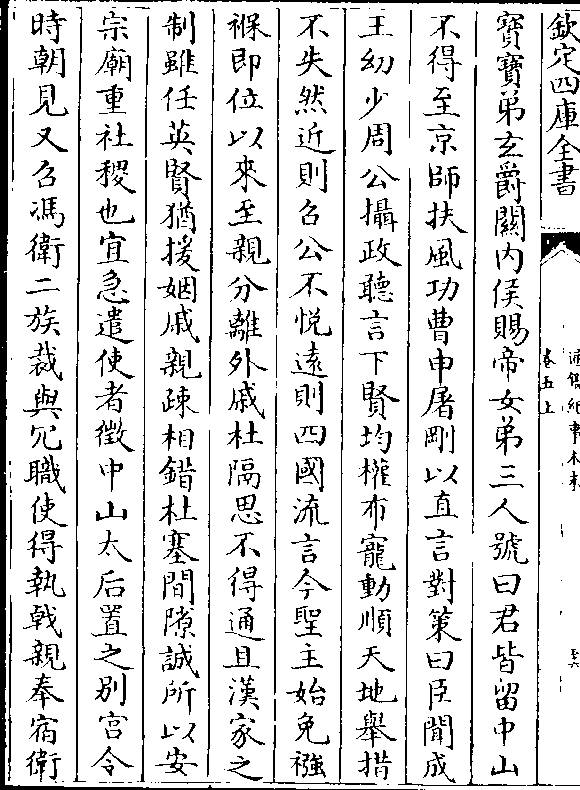 欽定四庫全書
通鑑紀事本末
卷五上
寳寳弟玄爵關内侯賜帝女弟三人號曰君皆留中山
不得至京師扶風功曹申屠剛以直言對策曰臣聞成
王幼少周公攝政聽言下賢均權布寵動順天地舉措
不失然近則召公不悦遠則四國流言今聖主始免襁
褓即位以來至親分離外戚杜隔恩不得通且漢家之
制雖任英賢猶援姻戚親疎相錯杜塞間隙誠所以安
宗廟重社稷也宜急遣使者徵中山太后置之别宫令
時朝見又召馮衛二族裁與冗職使得執戟親奉宿衛